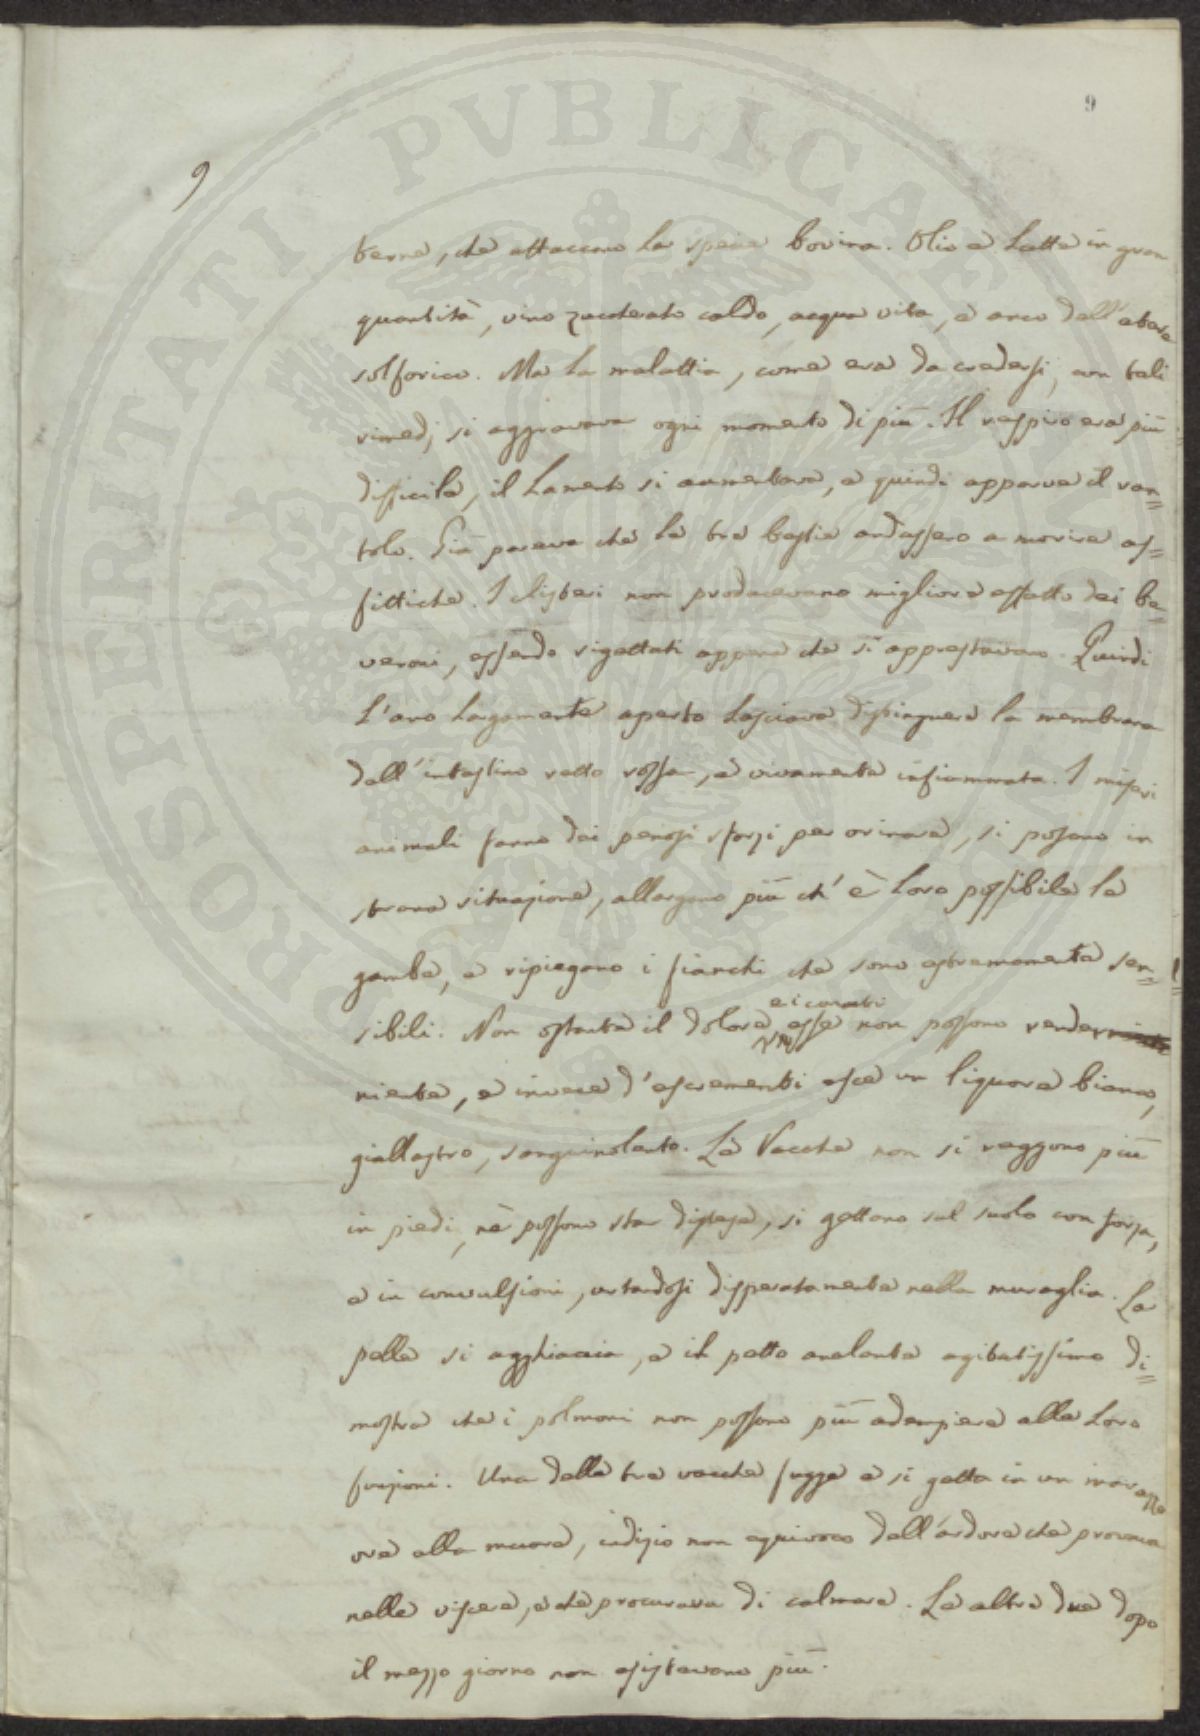 9
9
terne, che attaccano la specie bovina. Olio e latte in gran
quantità, vino zuccherato caldo, acqua vita, e anco dell'etere
solforico. Ma la malattia, come era da credersi, con tali
rimedj si aggravava ogni momento di più. Il respiro era più
difficile, il lamento si aumentava, e quindi apparve il ran=
tolo. Già pareva che le tre bestie andassero a morire as=
fittiche. I clisteri non producevano migliore effetto dei be=
veroni, essendo rigettati appena che si apprestavano. Quindi
l'ano largamente aperto lasciava distinguere la membrana
dell'intestino retto rossa, e vivamente infiammata. I miseri
animali fanno dei penosi sforzi per orinare, si posano in
strana situazione, allargano più ch'è loro possibile le
gambe, e ripiegano i fianchi che sono estremamente sen=
sibili. Non ostante il dolore, e i conati esse non possono render
niente, e invece d'escrementi esce un liquore bianco,
giallastro, sanguinolento. Le Vacche non si reggono più
in piedi, nè possono star distese, si gettano sul suolo con forza,
e in convulsioni, urtandosi disperatamente nella muraglia. La
pelle si agghiaccia, e il petto anelante agitatissimo di=
mostra che i polmoni non possono più adempiere alle loro
funzioni. Una delle tre vacche fugge e si getta in un
ove alla muore, indizio non equivoco dell'ardore che provava
nelle viscere, e che procurava di calmare. Le altre due dopo
il mezzo giorno non esistevano più.
PROSPERITATI PVBLICAE